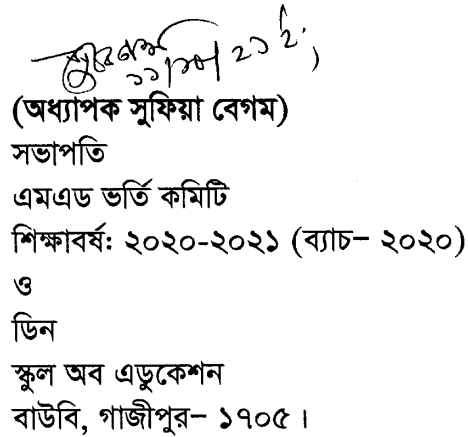 (অধ্যাপক সুফিয়া বেগম)
সভাপতি
এমএড ভর্তি কমিটি
শিক্ষাবর্ষ: ২০২০-২০২১ (ব্যাচ– ২০২০)
ও
ডিন
স্কুল অব এডুকেশন
বাউবি, গাজীপুর– ১৭০৫।